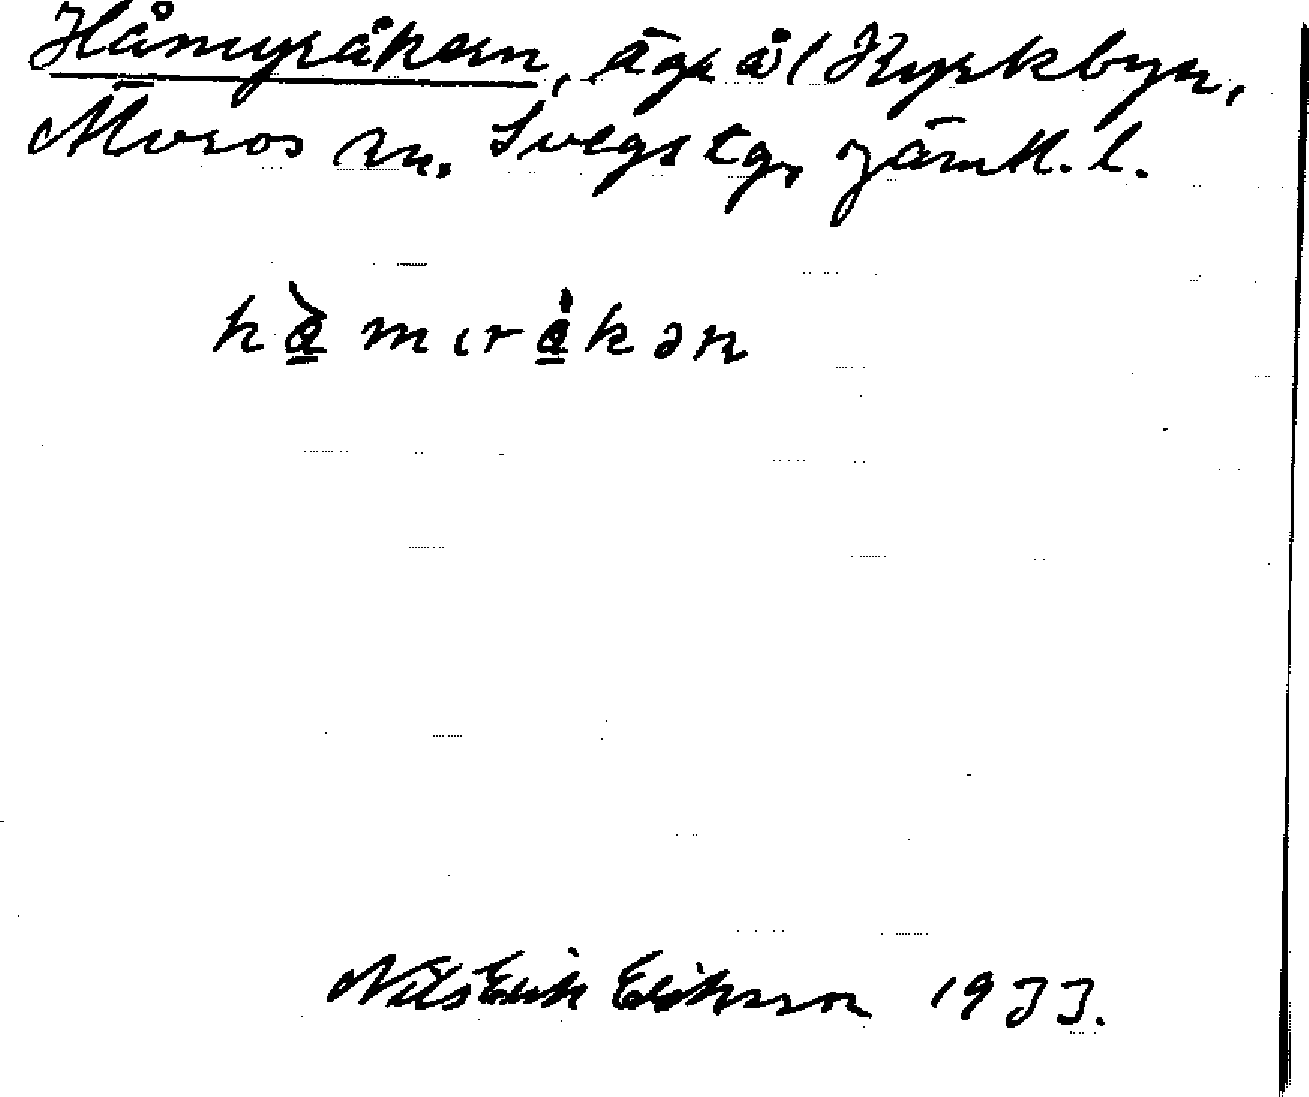 Håmyråkern, äga å/ Kyrkbyn,
Överos sn. Svegs tg, Jämtl. l.
hå̀mıråkən
Nils Erik Eriksson 1933.